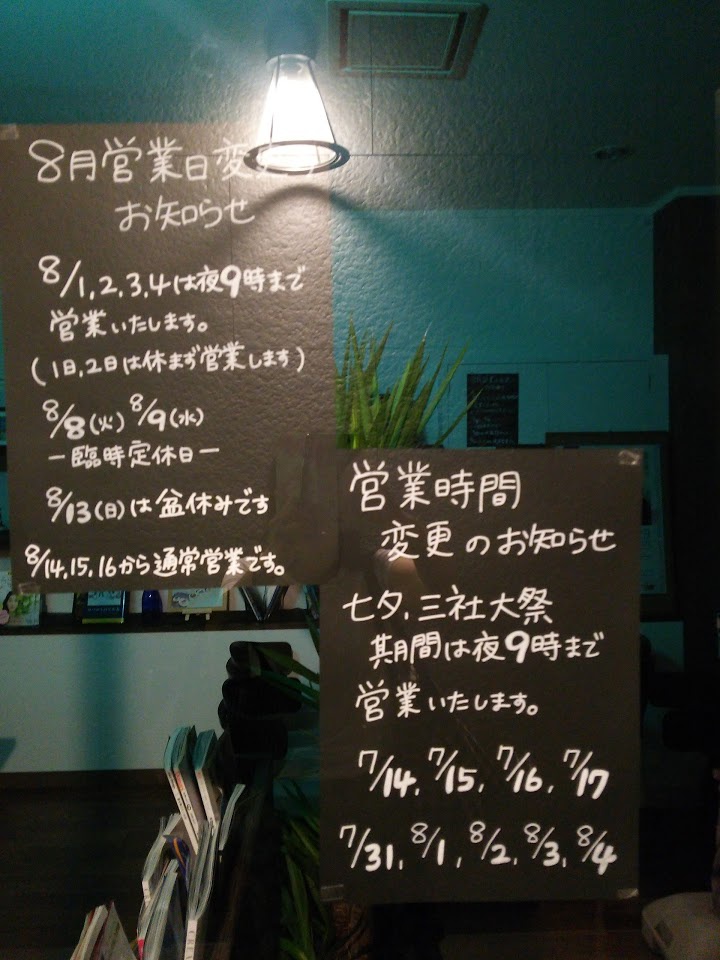 8月営業日変
お知らせ
8/1,2,3,4は夜9時まで
営業いたします。
(1日,2日は休まず営業します)
8/8(火) 8/9(水)
ー臨時定休日ー
8/13(日)は盆休みです
8/14,15,16から通常営業です。
営業時間
変更のお知らせ
七夕,三社大祭
期間は夜9時まで
営業いたします。
7/14,7/15,7/16,7/17
7/31,8/1,8/2,8/3,8/4